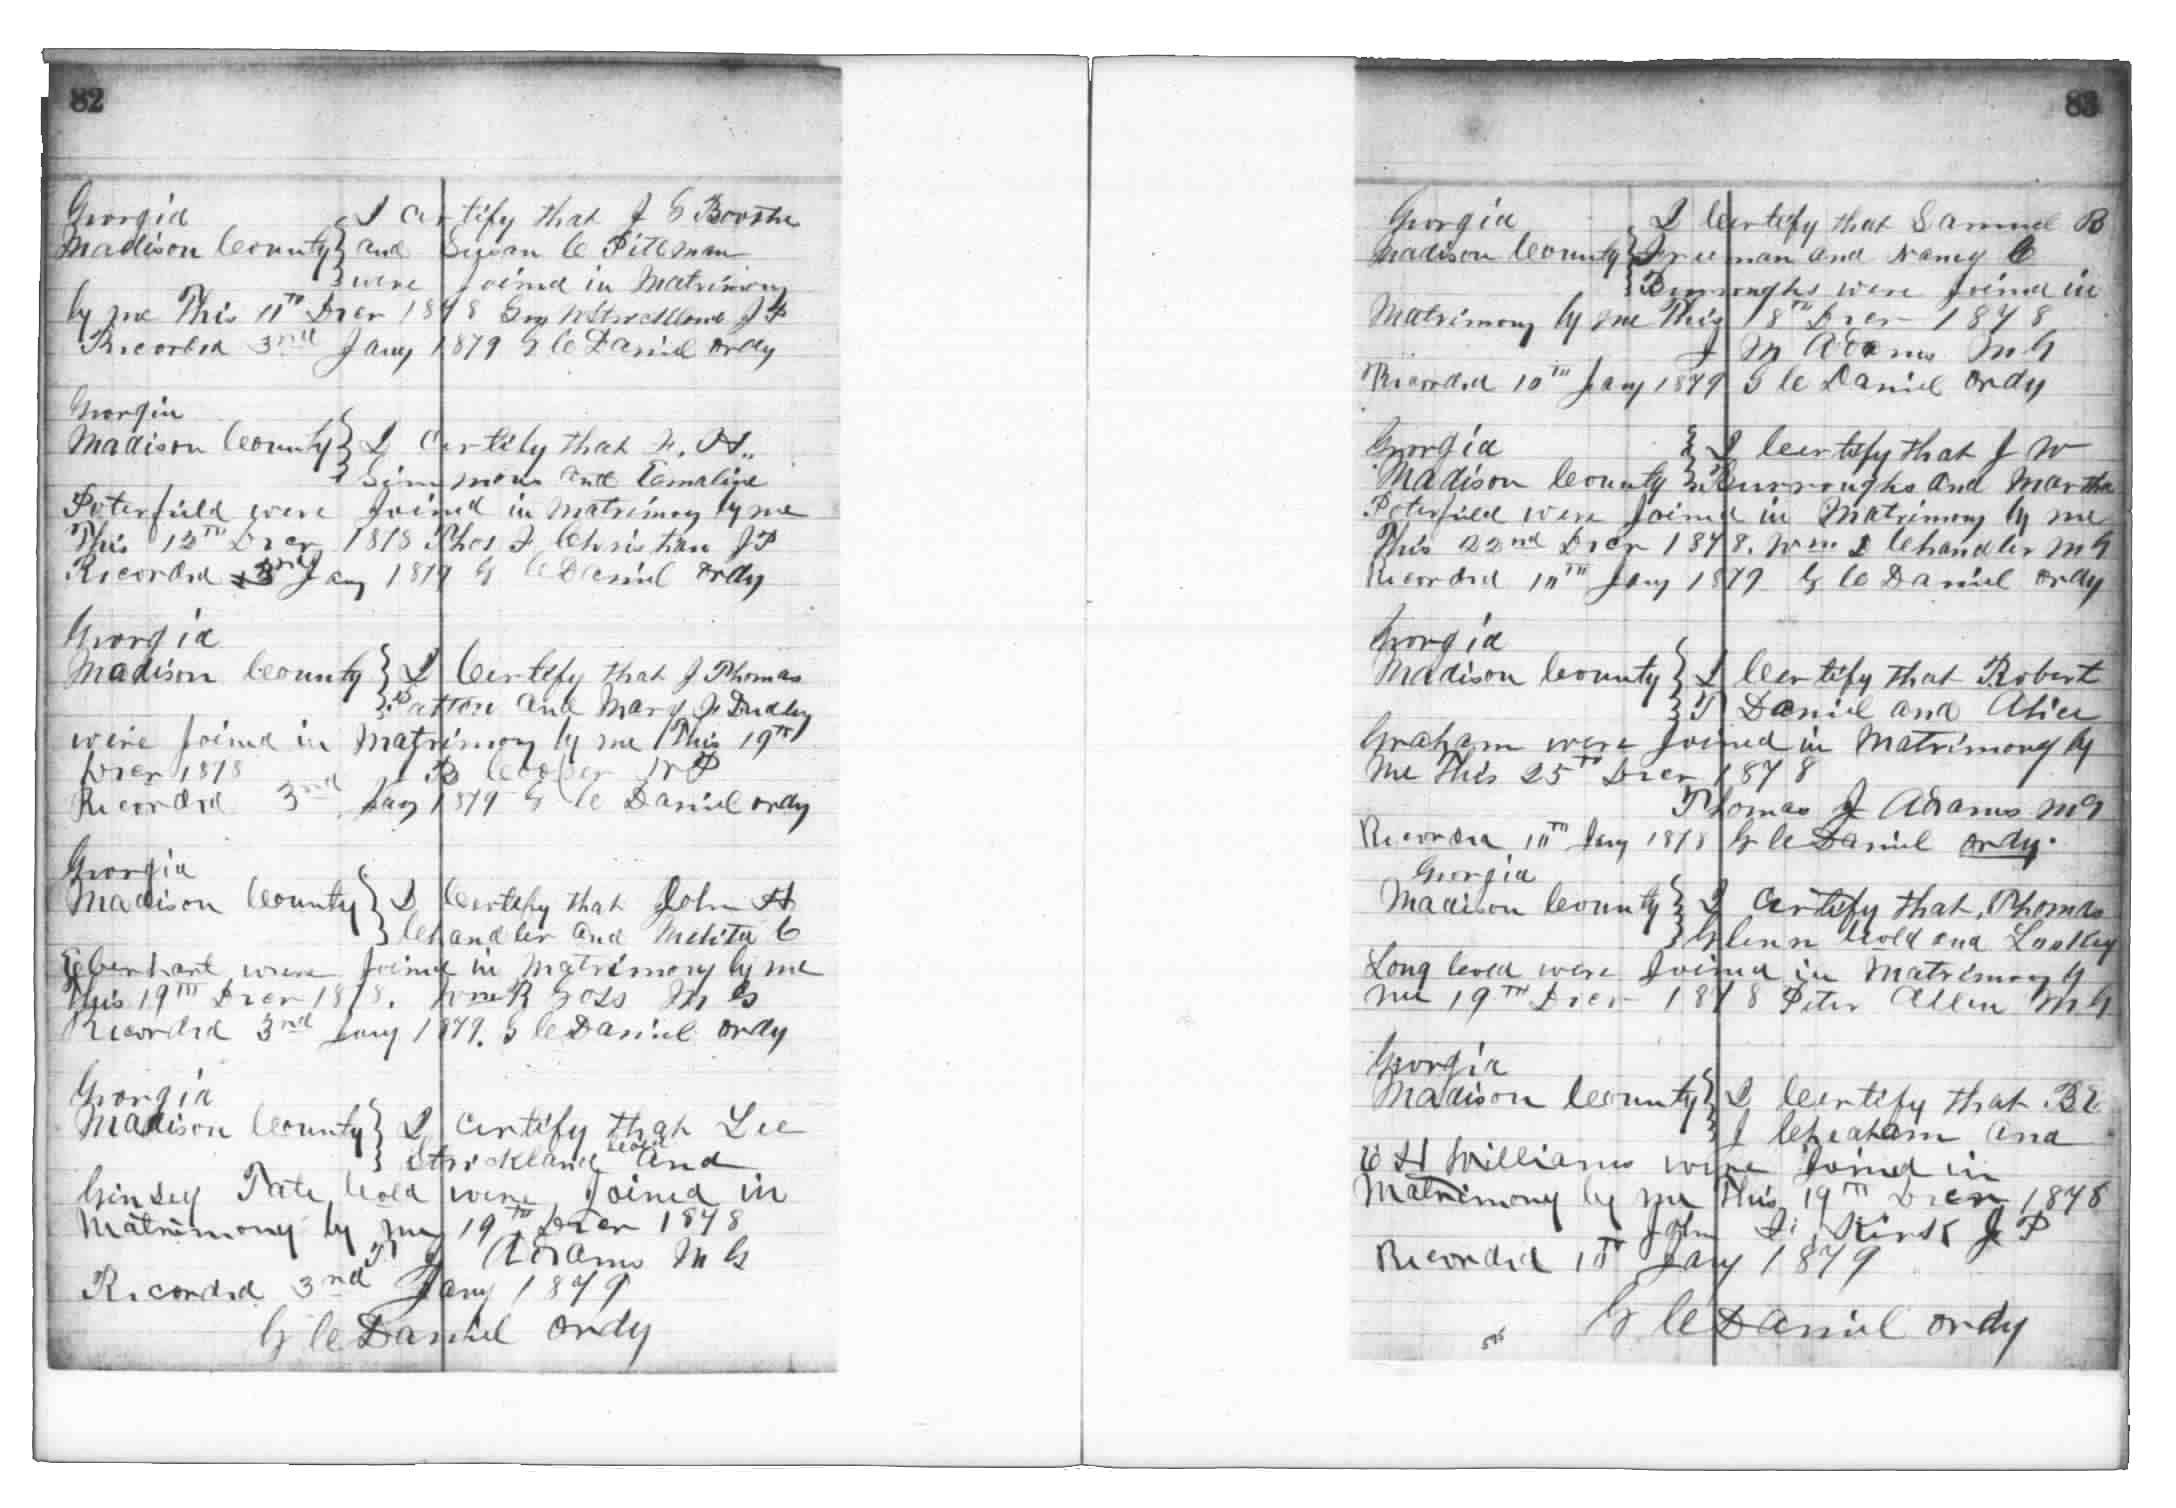 82
Georgia I certify that J G Booth
Madison County and Susan C Pittman
were Joined in Matrimony
by me This 11th Decr 1878 Geo Strickland J P
Recorded 3rd Jany 1879 G C Daniel Ordy
Georgia
Madison County I certify that F. H.
Simmons and Emaline
Poterfield were Joined in Matrimony by me
This 12th Decr 1878 Thos F Christian J P
Recorded 3rd Jany 1879 G C Daniel Ordy
Georgia
Madison County I Certify that J Thomas
Patton and Mary F Dudley
were Joined in Matrimony by me This 19th
Decr 1878 B Cooper N P
Recorded 3rd Jany 1879 G C Daniel Ordy
Georgia
Madison County I Certify that John H
Chandler and Melita C
Eberhart were Joined in Matrimony by me
This 19th Decr 1878. Wm R Goss M G
Recorded 3rd Jany 1879. G C Daniel Ordy
Georgia
Madison County I certify that Lee
Strickland Cold and
Ginsey Tate Cold were Joined in
Matrimony by me 19th Decr 1878
T J Adams M G
Recorded 3rd Jany 1879
G C Daniel Ordy
83
Georgia I Certify that Samuel B
Madison County Freeman and Nancy C
Burroughs were Joined in
Matrimony by me This 18th Decr 1878
J M Adams M G
Recorded 10th Jany 1879 G C Daniel Ordy
Georgia I Certify that J W
Madison County Burroughs and Martha
Poterfield were Joined in Matrimony by me
This 22nd Decr 1878. Wm D Chandler M G
Recorded 10th Jany 1879 G C Daniel Ordy
Georgia
Madison County I Certify that Robert
T Daniel and Alice
Graham were Joined in Matrimony by
me This 25th Decr 1878
Thomas J Adams M G
Recorded 10th Jany 1878 G C Daniel Ordy.
Georgia
Madison County I certify that Thomas
Glenn Cold and
Long Cold were Joined in Matrimony by
me 19th Decr 1878 Peter Allen M G
Georgia
Madison County I Certify that
J Cheatham and
E H Williams were Joined in
Matrimony by me This 19th Decr 1878
John Kirk J P
Recorded 10th Jany 1879
G C Daniel Ordy